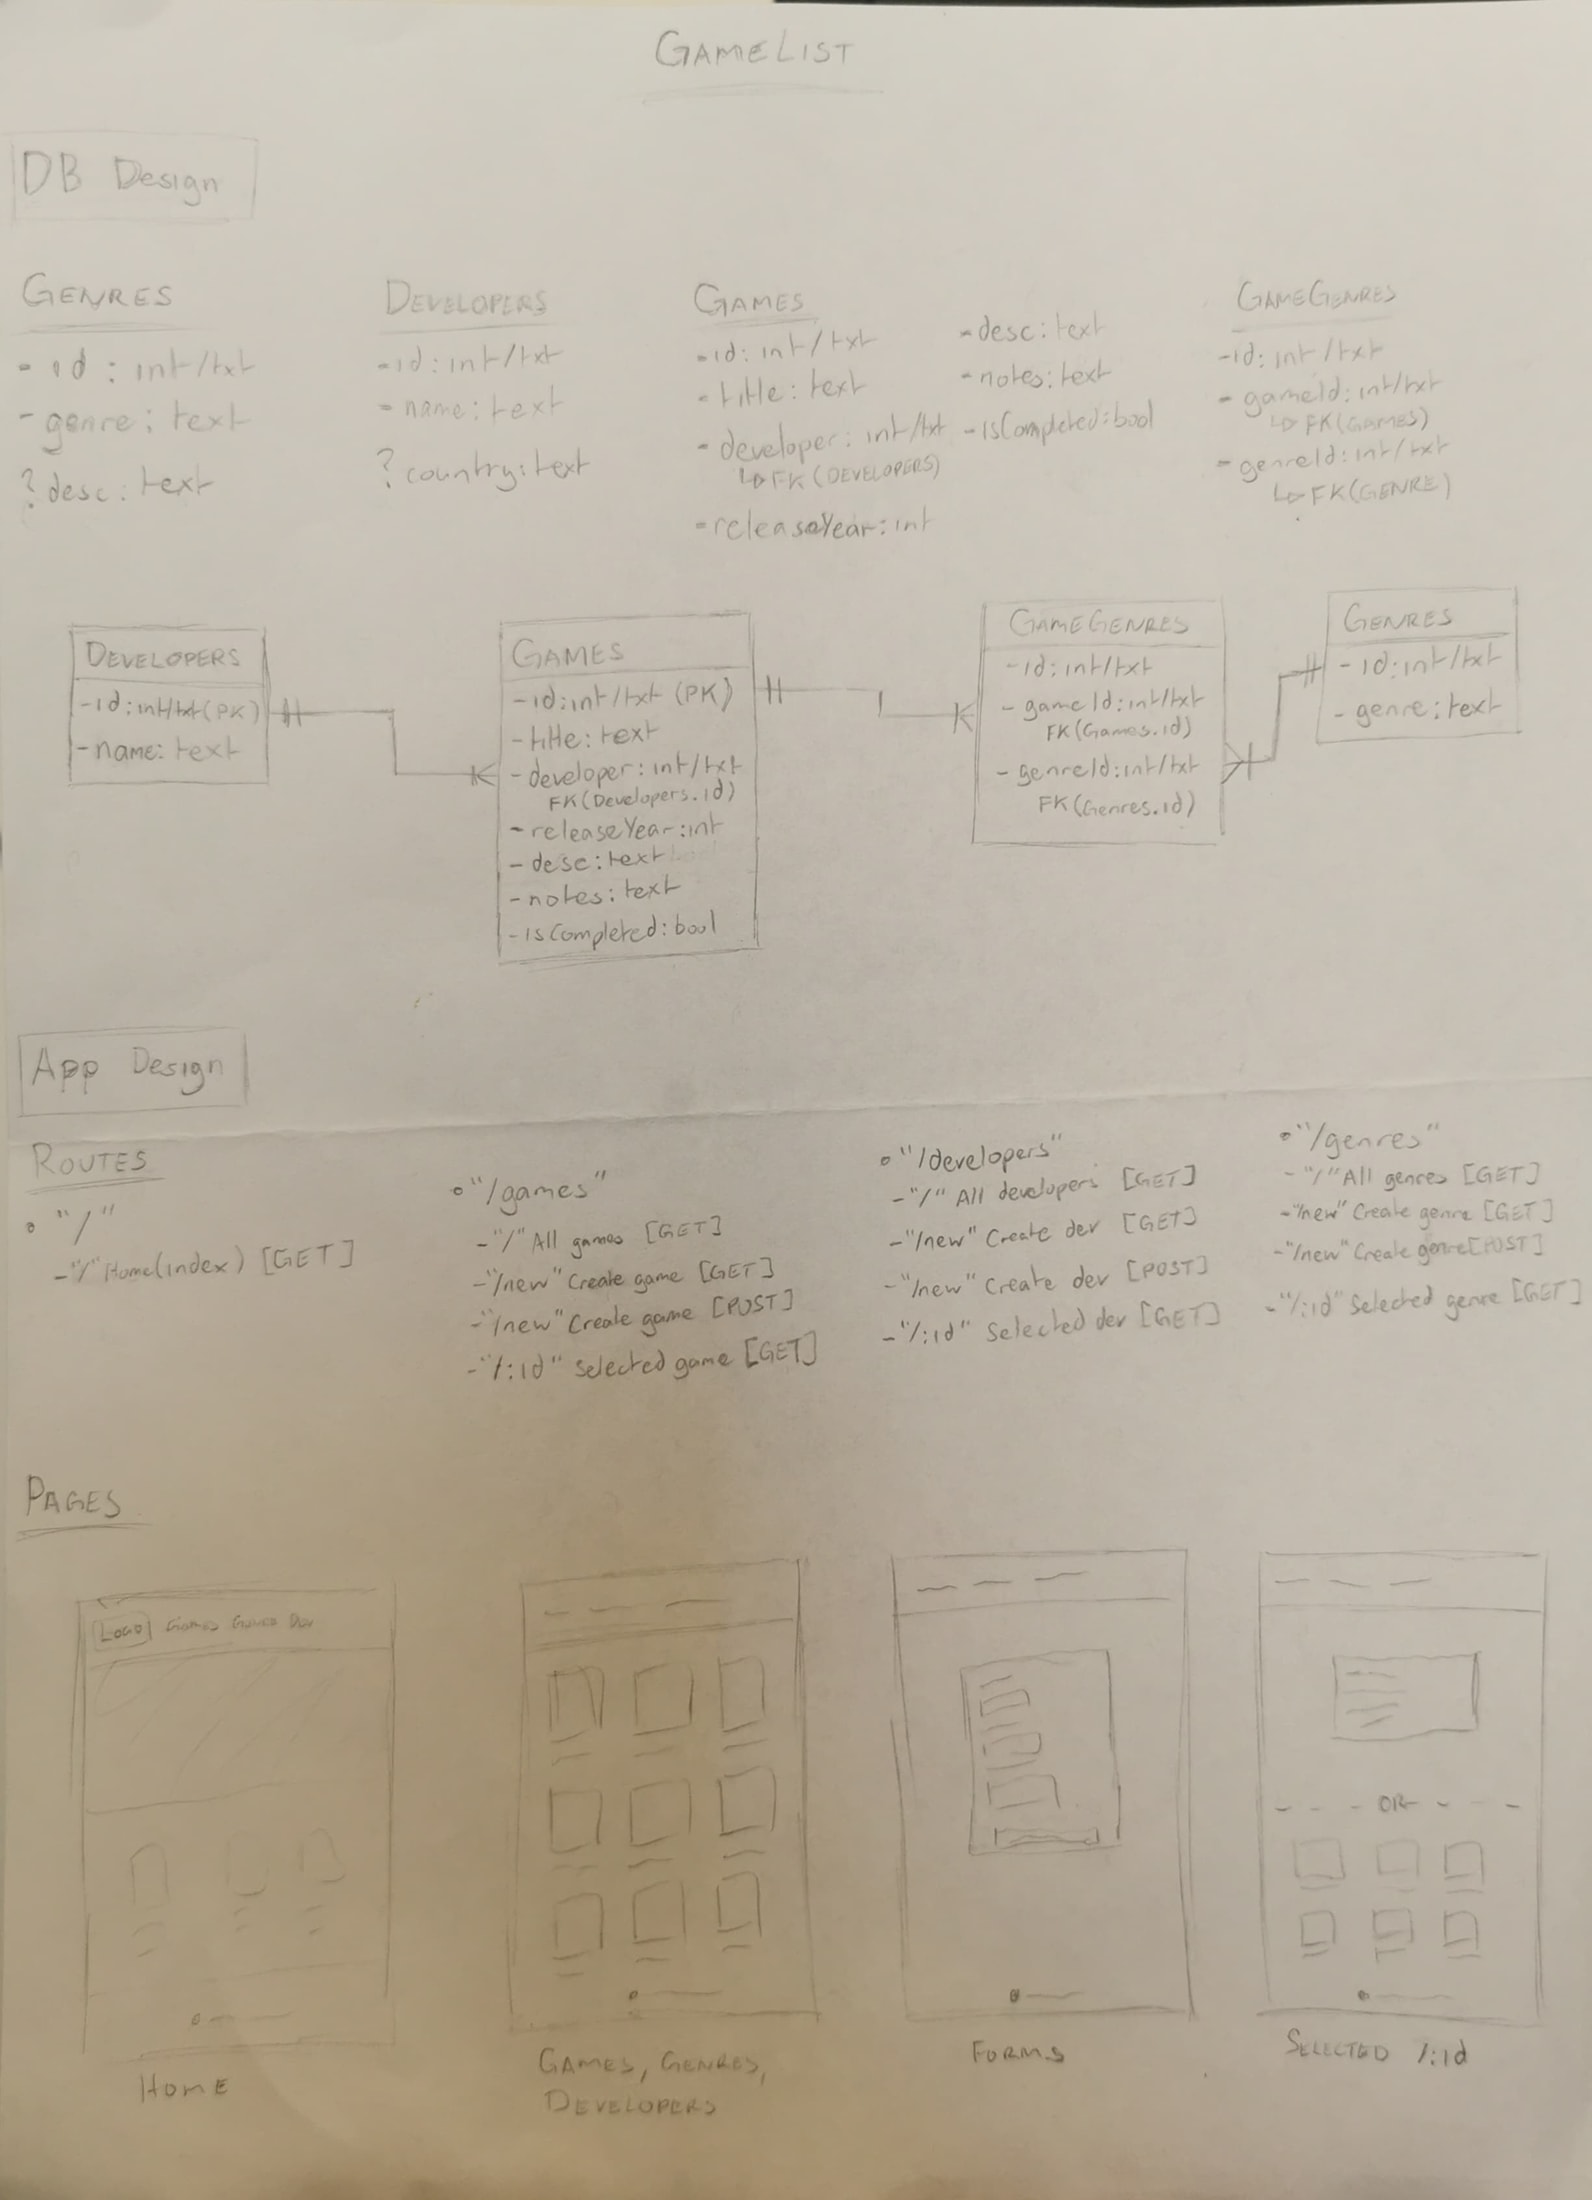 GAMELIST
DB Design
GENRES
- id : int/txt
- genre : text
? desc : text
DEVELOPERS
- id : int/txt
- name : text
? country : text
GAMES
- id : int/txt
- title : text
- developer : int/txt
↳ FK (DEVELOPERS)
- releaseYear : int
- desc : text
- notes : text
- isCompleted : bool
GAMEGENRES
- id : int/txt
- gameId : int/txt
↳ FK (GAMES)
- genreId : int/txt
↳ FK (GENRE)
DEVELOPERS
- id : int/txt (PK)
- name : text
GAMES
- id : int/txt (PK)
- title : text
- developer : int/txt
FK (Developers.id)
- releaseYear : int
- desc : text
- notes : text
- isCompleted : bool
GAMEGENRES
- id : int/txt
- gameId : int/txt
FK (Games.id)
- genreId : int/txt
FK (Genres.id)
GENRES
- id : int/txt
- genre : text
App Design
ROUTES
• "/"
- "/" Home(index) [GET]
• "/games"
- "/" All games [GET]
- "/new" Create game [GET]
- "/new" Create game [POST]
- "/:id" Selected game [GET]
• "/developers"
- "/" All developers [GET]
- "/new" Create dev [GET]
- "/new" Create dev [POST]
- "/:id" Selected dev [GET]
• "/genres"
- "/" All genres [GET]
- "/new" Create genre [GET]
- "/new" Create genre [POST]
- "/:id" Selected genre [GET]
PAGES
LOGO GAMES GENRES DEV
HOME
GAMES, GENRES,
DEVELOPERS
FORMS
OR
SELECTED /:id